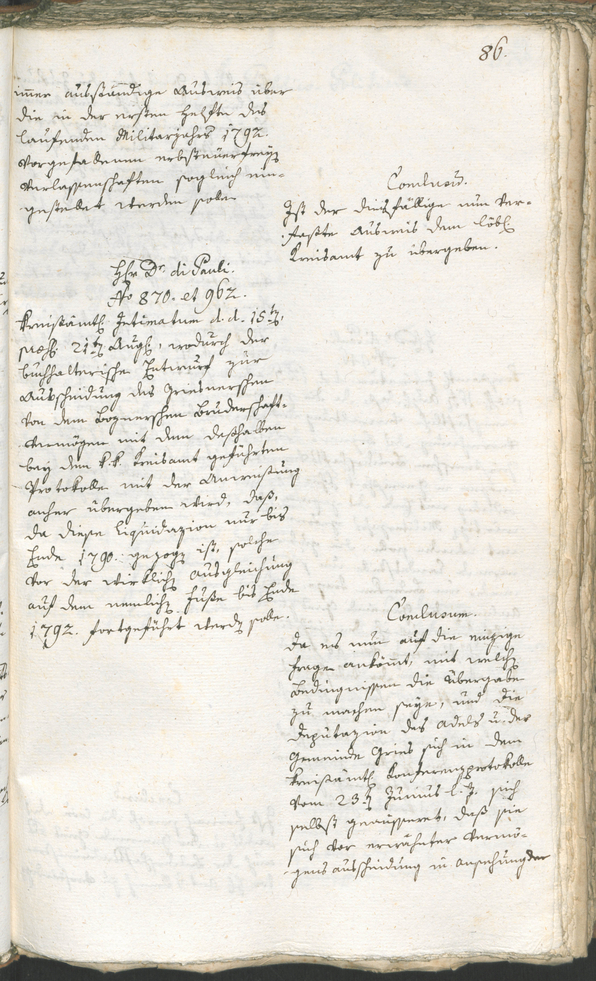 86.
immer ausständige Ausweis über
die in der ersten Helfte des
laufenden Militarjahrs 1792.
vorgefallenen erbsteuerfreyen
Verlassenschaften sogleich ein-
gestellet werden solle.
Conclusum.
Ist der dießfällige nun ver-
faßte Ausweis dem löbl.
Kreisamt zu übergeben.
Hr Dr. di Pauli.
No 870. et 962.
Kreisämtl. Intimatum d.d. 15ten,
praes. 21ten Augl., wodurch der
buchhalterische Entwurf zur
Ausscheidung des Griesnerschen
von dem Boznerschen Bruderschaft-
vermögen mit dem deßhalben
bey dem k.k. Kreisamt geführten
Protokolle mit der Anweisung
anher übergeben wird, daß,
da diese Liquidazion nur bis
Ende 1790. gezogen ist, solche
vor der wirklichen Ausgleichung
auf dem nemlichen Fuße bis Ende
1792. fortgeführt werden solle.
Conclusum.
Da es nun auf die einzige
Frage ankömt, mit welchen
Bedingnissen die Übergabe
zu machen seye, und die
Deputazion des Adels u. der
Gemeinde Gries sich in dem
kreisämtl. Konferenzprotokolle
vom 23ten Junius l. J. sich
selbst geäusseret, daß sie
sich vor erwähnter Vermö-
gensausscheidung in Ansehung der